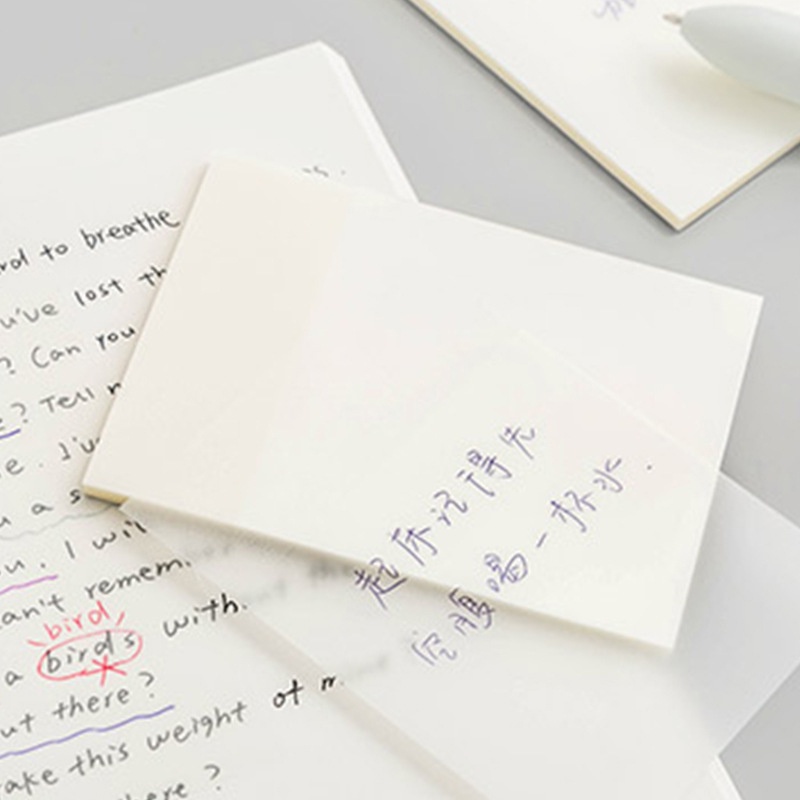 s.
rd to breathe
u've lost th
? Can you
? Tell
e. I'v
u a s
ou. I wil
an't remem.
bird
a birds with.
ut there?
ake this weight of m.
here?
起床记得先
空腹喝一杯水.